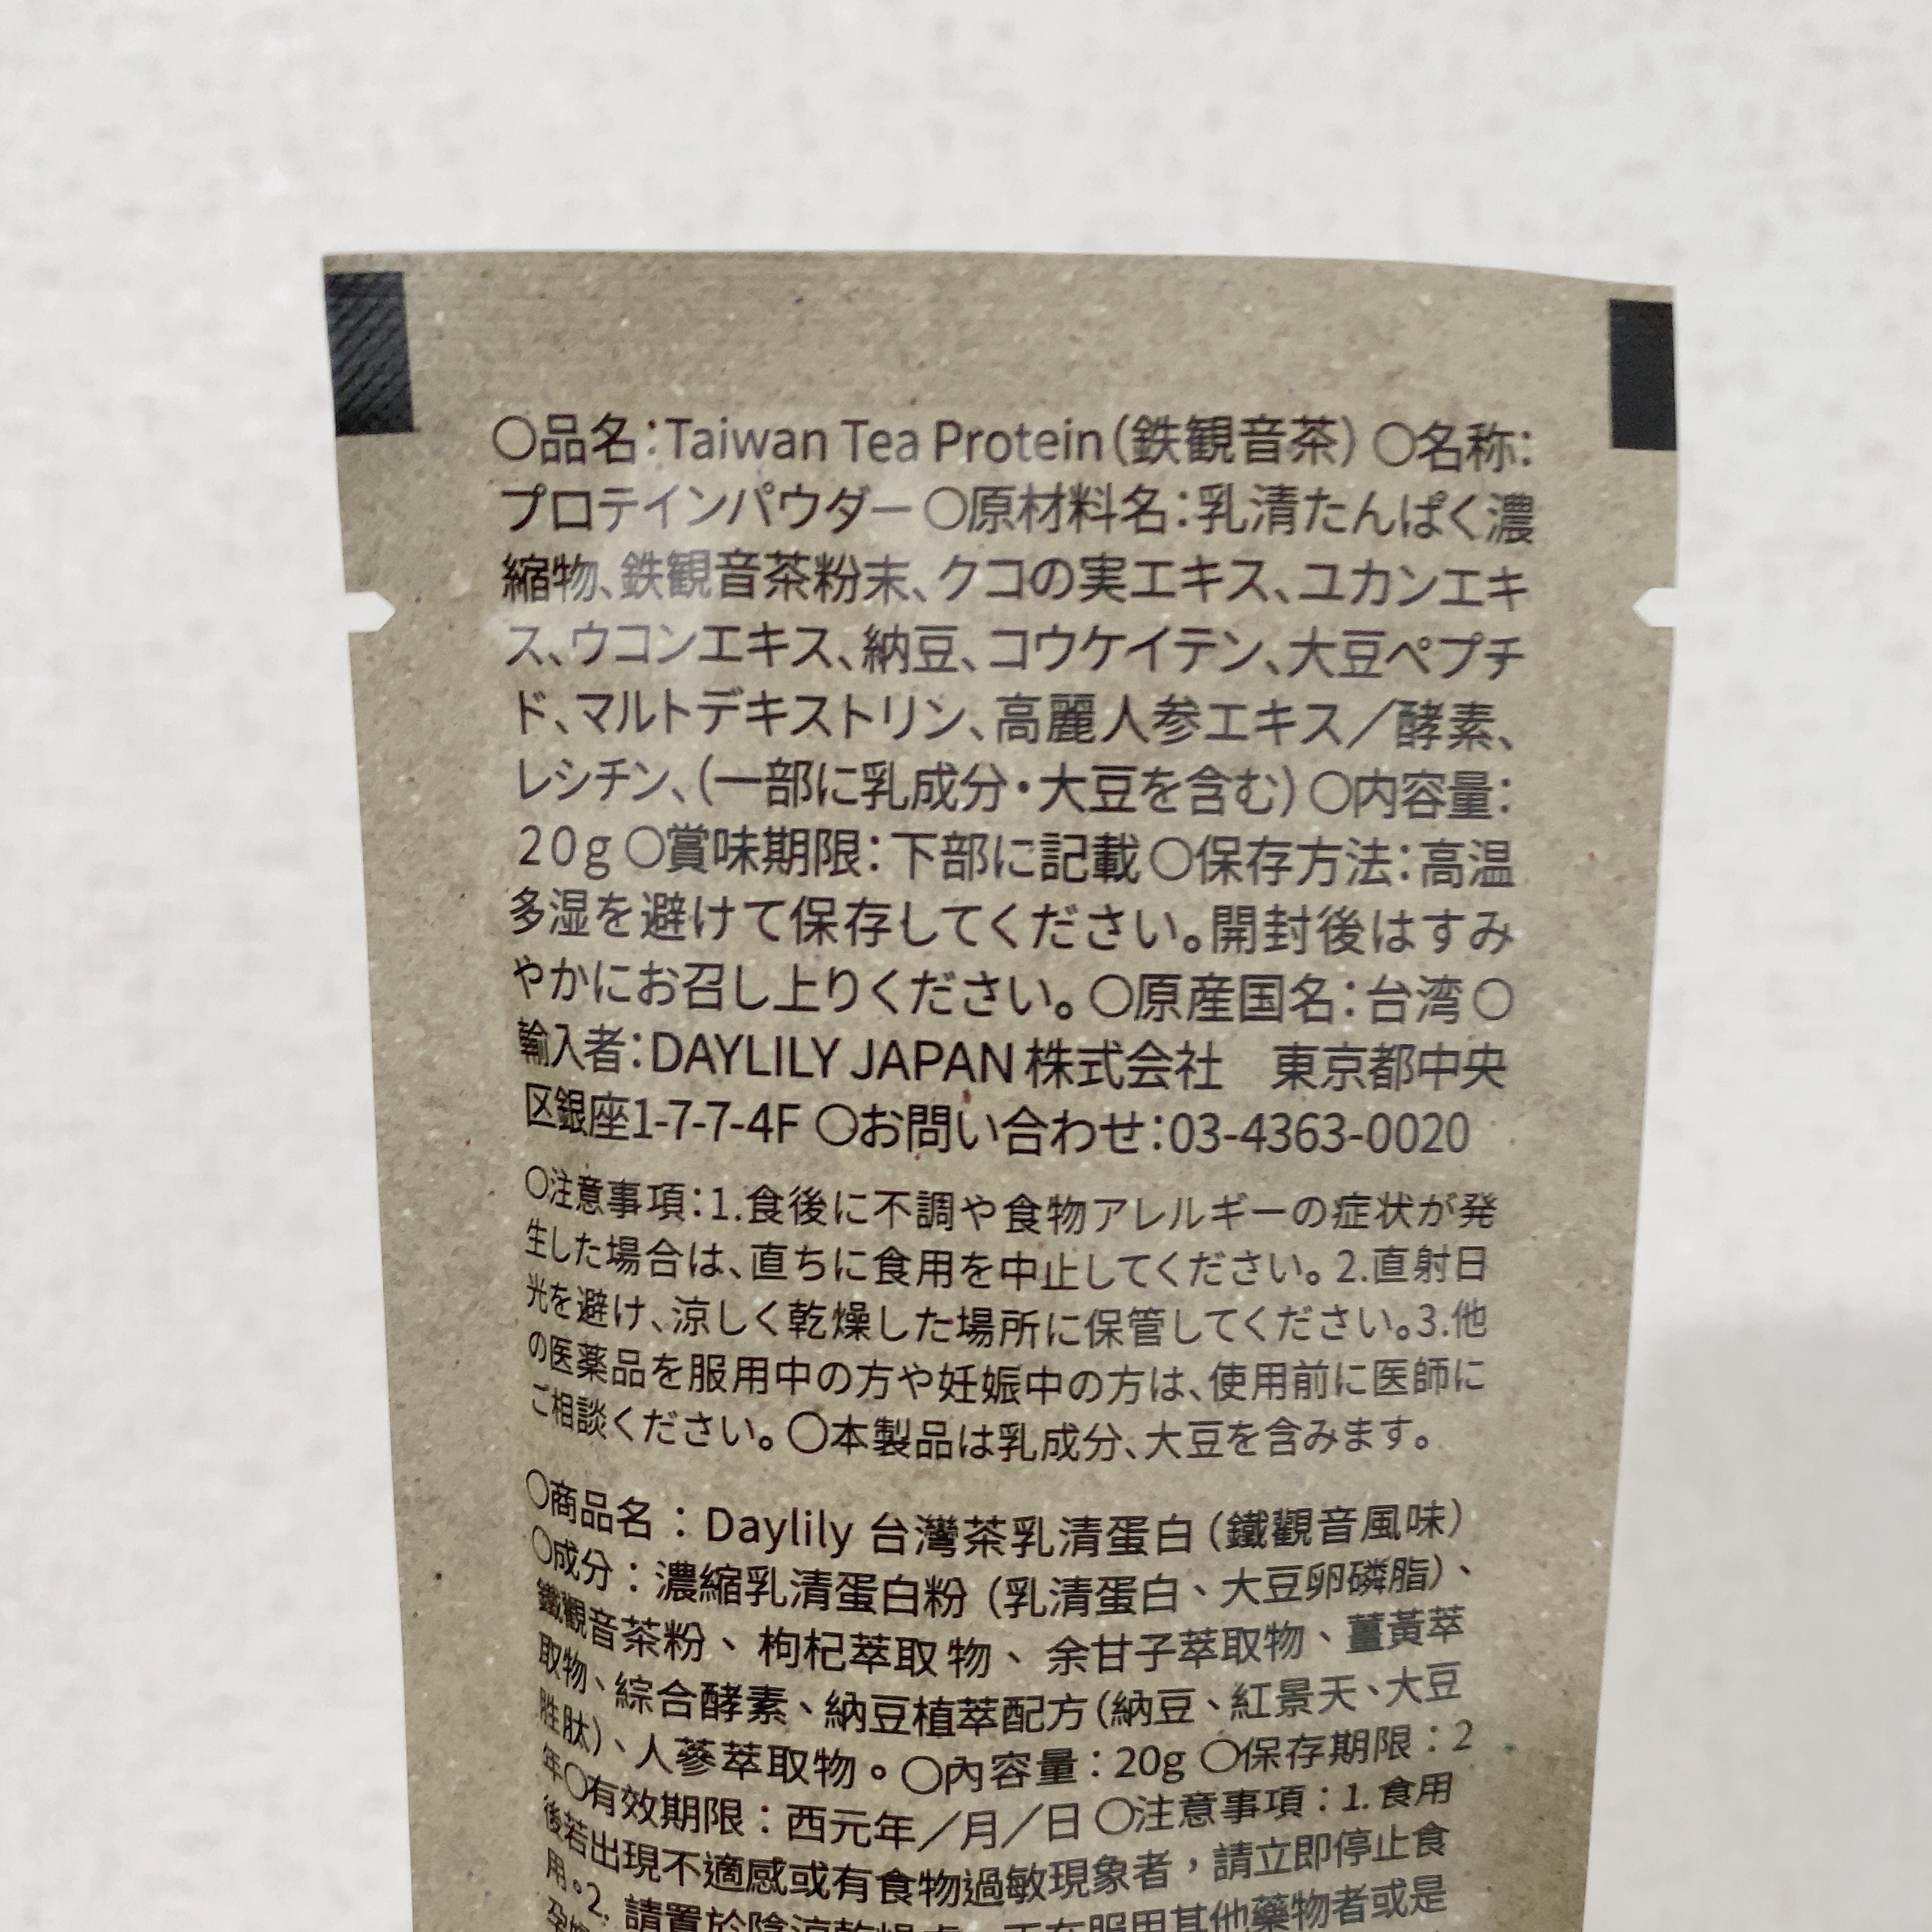 〇品名：Taiwan Tea Protein（鉄観音茶）〇名称：
プロテインパウダー 〇原材料名：乳清たんぱく濃
縮物、鉄観音茶粉末、クコの実エキス、ユカンエキ
ス、ウコンエキス、納豆、コウケイテン、大豆ペプチ
ド、マルトデキストリン、高麗人参エキス／酵素、
レシチン、（一部に乳成分・大豆を含む）〇内容量：
20g 〇賞味期限：下部に記載 〇保存方法：高温
多湿を避けて保存してください。開封後はすみ
やかにお召し上りください。〇原産国名：台湾 〇
輸入者：DAYLILY JAPAN 株式会社　東京都中央
区銀座1-7-7-4F 〇お問い合わせ：03-4363-0020
〇注意事項：1.食後に不調や食物アレルギーの症状が発
生した場合は、直ちに食用を中止してください。2.直射日
光を避け、涼しく乾燥した場所に保管してください。3.他
の医薬品を服用中の方や妊娠中の方は、使用前に医師に
ご相談ください。〇本製品は乳成分、大豆を含みます。
〇商品名：Daylily 台灣茶乳清蛋白（鐵觀音風味）
〇成分：濃縮乳清蛋白粉（乳清蛋白、大豆卵磷脂）、
鐵觀音茶粉、枸杞萃取物、余甘子萃取物、薑黃萃
取物、綜合酵素、納豆植萃配方（納豆、紅景天、大豆
胜肽）、人蔘萃取物。〇內容量：20g 〇保存期限：2
年〇有效期限：西元年／月／日 〇注意事項：1. 食用
後若出現不適感或有食物過敏現象者，請立即停止食
用。2. 請置於陰涼乾燥處 正在服用其他藥物者或是